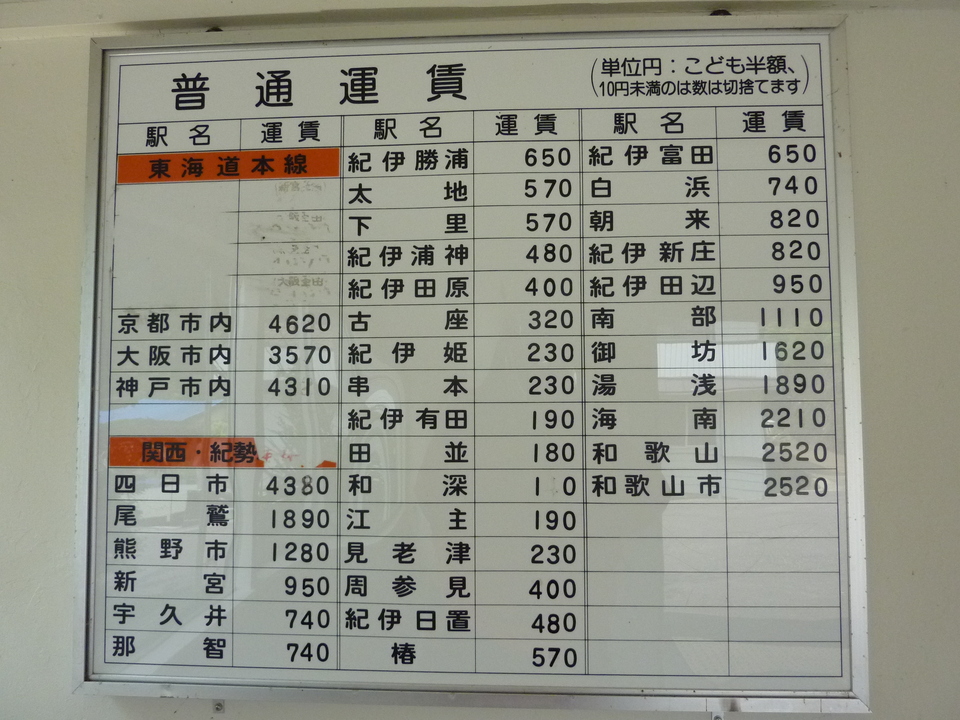 普通運賃
(単位円：こども半額、
10円未満のは数は切捨てます)
駅名 運賃 駅名 運賃 駅名 運賃
東海道本線 紀伊勝浦 650 紀伊富田 650
太地 570 白浜 740
下里 570 朝来 820
紀伊浦神 480 紀伊新庄 820
紀伊田原 400 紀伊田辺 950
京都市内 4620 古座 320 南部 1110
大阪市内 3570 紀伊姫 230 御坊 1620
神戸市内 4310 串本 230 湯浅 1890
紀伊有田 190 海南 2210
関西・紀勢 田並 180 和歌山 2520
四日市 4380 和深 1 0 和歌山市 2520
尾鷲 1890 江主 190
熊野市 1280 見老津 230
新宮 950 周参見 400
宇久井 740 紀伊日置 480
那智 740 椿 570